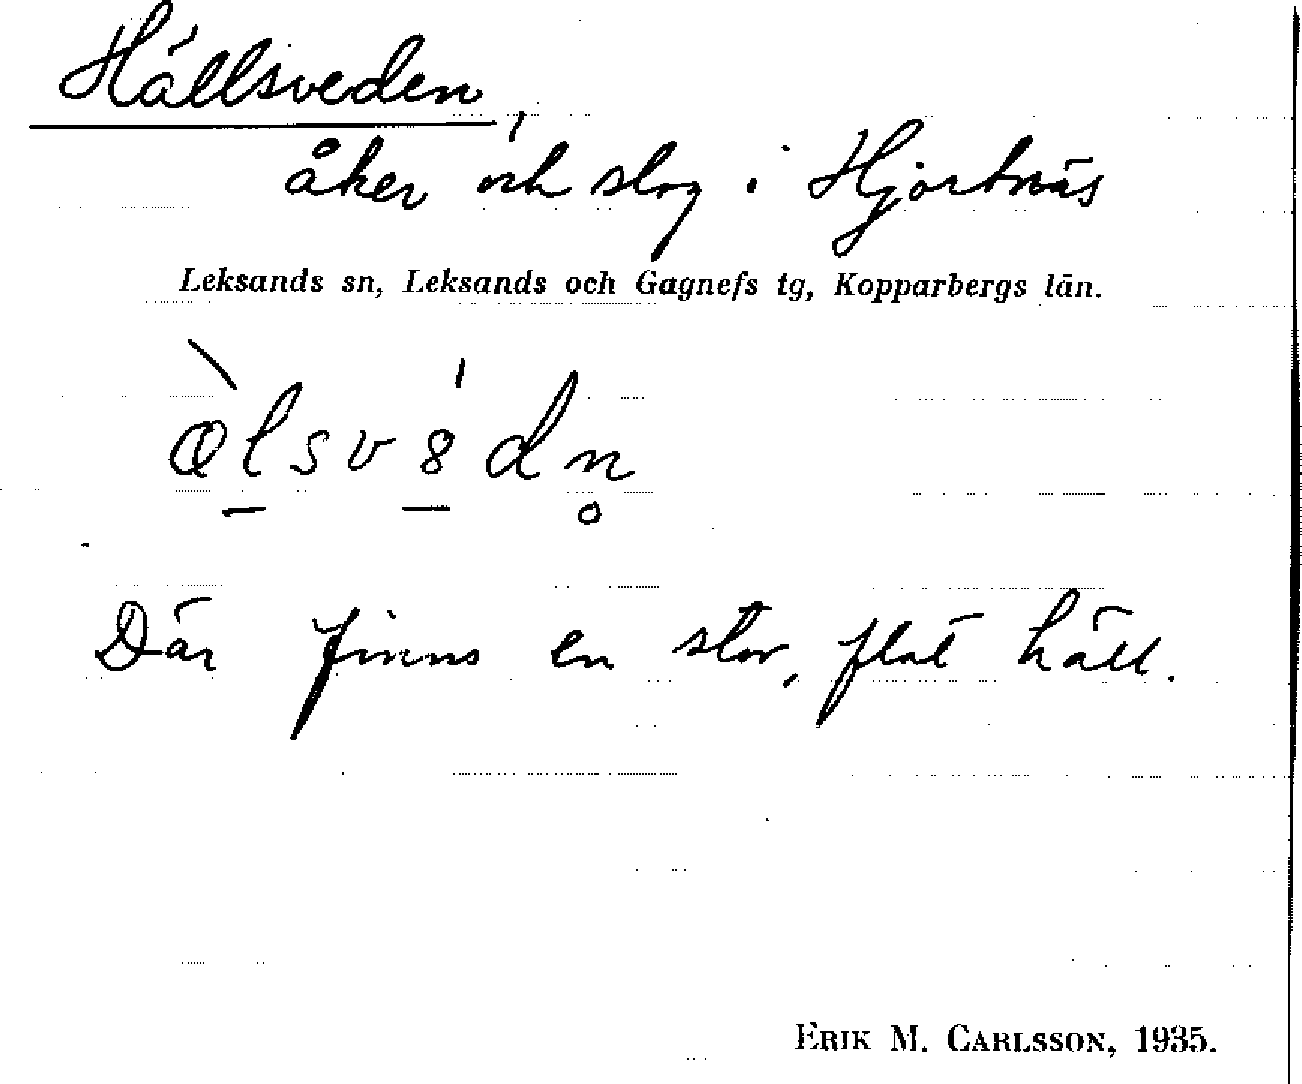 Hällsveden,
åker och slog i Hjortnäs
Leksands sn, Leksands och Gagnefs tg, Kopparbergs län.
Där finns en stor, flat häll.
ERIK M. CARLSSON, 1935.